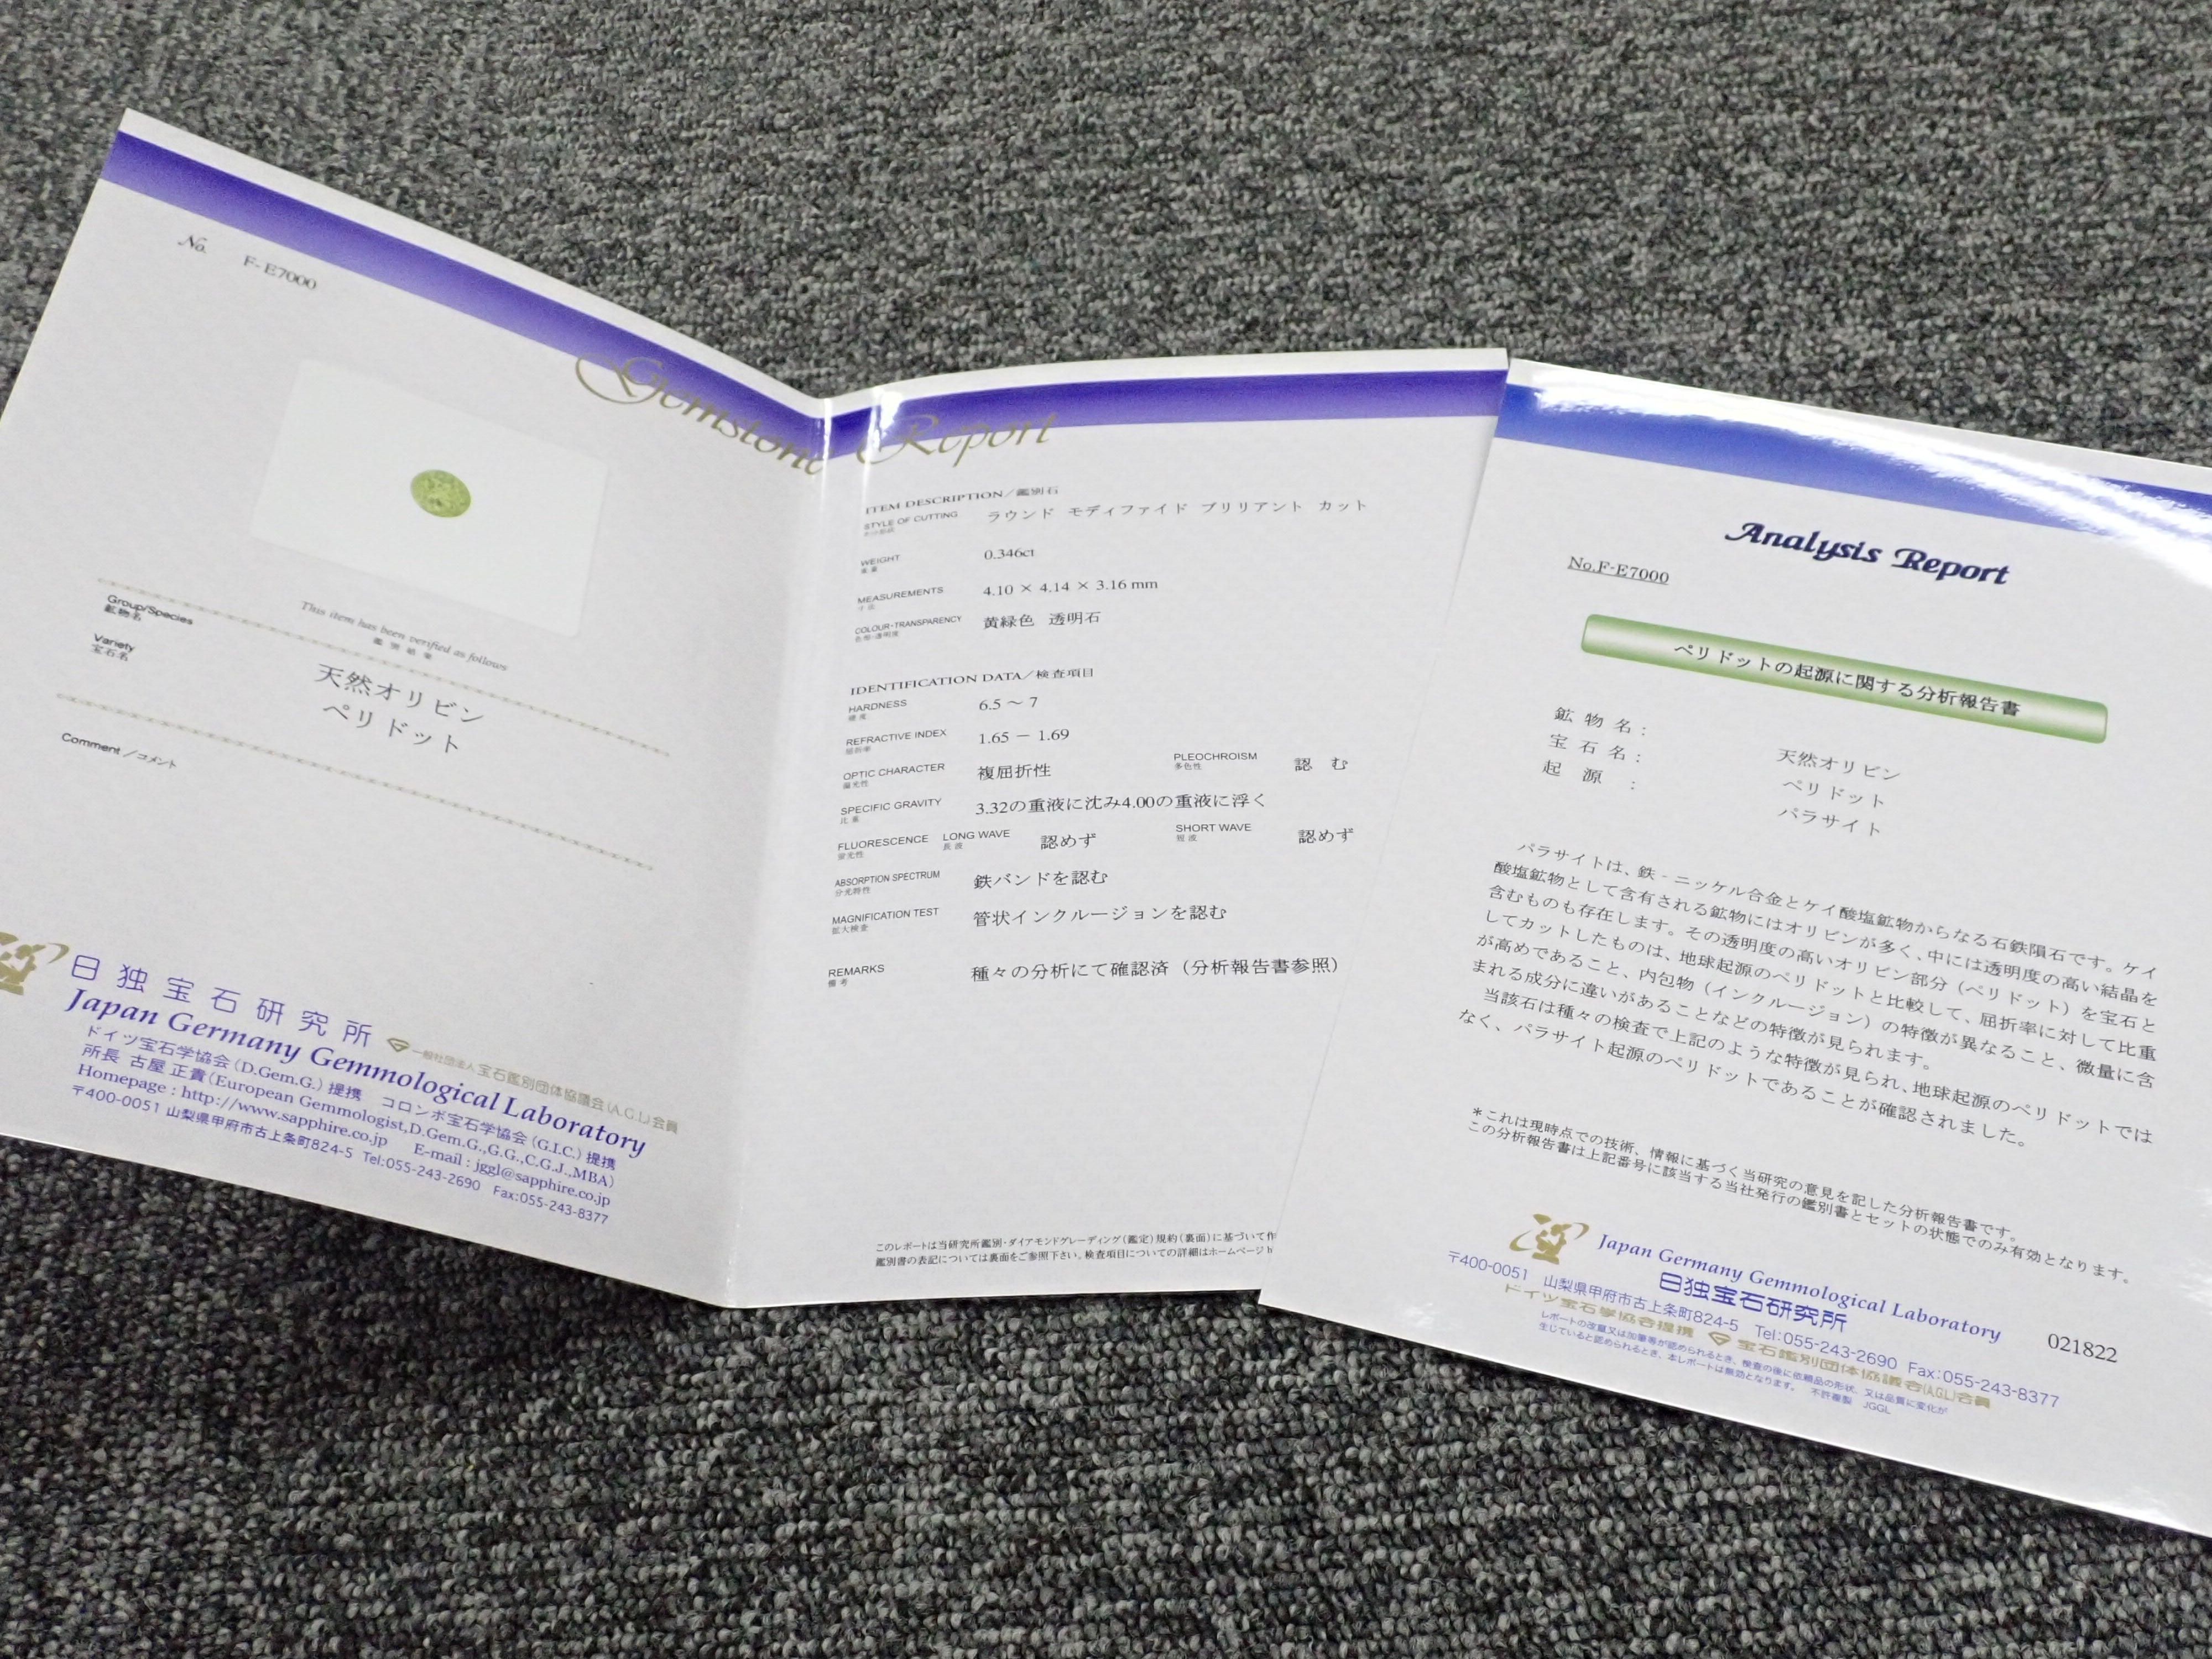 No. F-E7000
Gemstone Report
This item has been verified as follows
鑑別結果
Group/Species
鉱物名
天然オリビン
Variety
宝石名
ペリドット
Comment／コメント
日独宝石研究所
一般社団法人宝石鑑別団体協議会(A.G.L)会員
Japan Germany Gemmological Laboratory
ドイツ宝石学協会(D.Gem.G.)提携 コロンボ宝石学協会(G.I.C.)提携
所長 古屋 正貴(European Gemmologist,D.Gem.G.,G.G.,C.G.J.,MBA)
Homepage : http://www.sapphire.co.jp E-mail : jggl@sapphire.co.jp
〒400-0051 山梨県甲府市古上条町824-5 Tel:055-243-2690 Fax:055-243-8377
ITEM DESCRIPTION／鑑別石
STYLE OF CUTTING ラウンド モディファイド ブリリアント カット
WEIGHT 0.346ct
重量
MEASUREMENTS 4.10 × 4.14 × 3.16 mm
寸法
COLOUR-TRANSPARENCY 黄緑色 透明石
色相・透明度
IDENTIFICATION DATA／検査項目
HARDNESS 6.5 ～ 7
硬度
REFRACTIVE INDEX 1.65 － 1.69
屈折率
OPTIC CHARACTER 複屈折性 PLEOCHROISM 認 む
偏光性 多色性
SPECIFIC GRAVITY 3.32の重液に沈み4.00の重液に浮く
比重
FLUORESCENCE LONG WAVE 認めず SHORT WAVE 認めず
蛍光性 長波 短波
ABSORPTION SPECTRUM 鉄バンドを認む
分光特性
MAGNIFICATION TEST 管状インクルージョンを認む
拡大検査
REMARKS 種々の分析にて確認済（分析報告書参照）
備考
このレポートは当研究所鑑別・ダイアモンドグレーディング（鑑定）規約（裏面）に基づいて作
鑑別書の表記については裏面をご参照下さい。検査項目についての詳細はホームページ h
Analysis Report
No.F-E7000
ペリドットの起源に関する分析報告書
鉱物名： 天然オリビン
宝石名： ペリドット
起源： パラサイト
パラサイトは、鉄‐ニッケル合金とケイ酸塩鉱物からなる石鉄隕石です。ケイ
酸塩鉱物として含有される鉱物にはオリビンが多く、中には透明度の高い結晶を
含むものも存在します。その透明度の高いオリビン部分（ペリドット）を宝石と
してカットしたものは、地球起源のペリドットと比較して、屈折率に対して比重
が高めであること、内包物（インクルージョン）の特徴が異なること、微量に含
まれる成分に違いがあることなどの特徴が見られます。
当該石は種々の検査で上記のような特徴が見られ、地球起源のペリドットでは
なく、パラサイト起源のペリドットであることが確認されました。
＊これは現時点での技術、情報に基づく当研究の意見を記した分析報告書です。
この分析報告書は上記番号に該当する当社発行の鑑別書とセットの状態でのみ有効となります。
Japan Germany Gemmological Laboratory
日独宝石研究所
021822
〒400-0051 山梨県甲府市古上条町824-5 Tel:055-243-2690 Fax:055-243-8377
ドイツ宝石学協会提携 宝石鑑別団体協議会(A.G.L)会員
レポートの改竄又は加筆等が認められるとき、検査の後に依頼品の形状、又は品質に変化が
生じていると認められるとき、本レポートは無効となります。 不許複製 JGGL